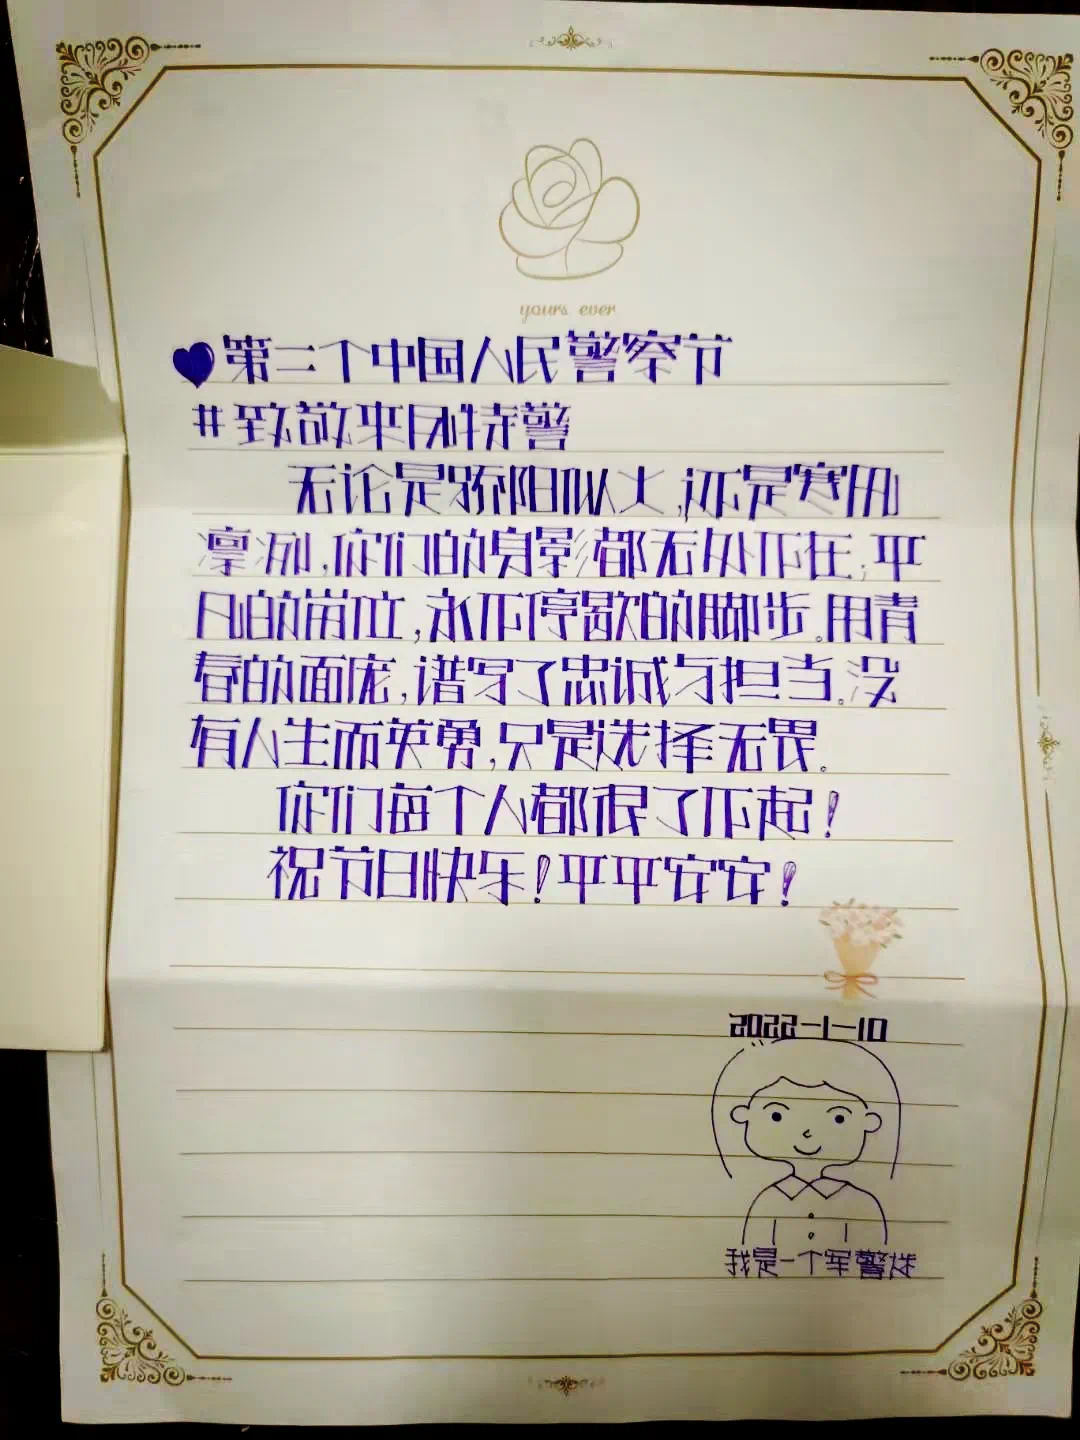 yours ever
第二个中国人民警察节
#致敬来凤特警
无论是骄阳似火,还是寒风
凛冽,你们的身影都无处不在,平
凡的岗位,永不停歇的脚步。用青
春的面庞,谱写了忠诚与担当。没
有人生而英勇,只是选择无畏。
你们每个人都很了不起!
祝节日快乐!平平安安!
2022-1-10
我是一个军警迷